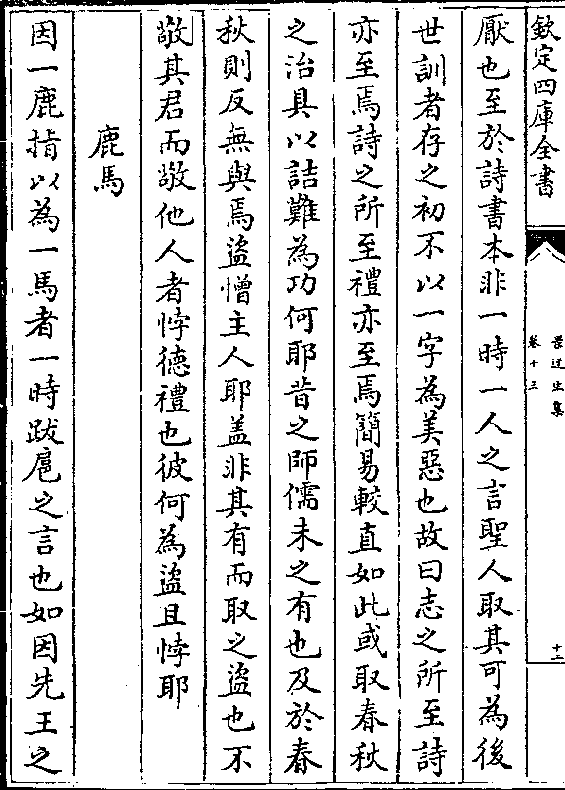 欽定四庫全書
景迂生集
卷十三
十二
厭也至於詩書本非一時一人之言聖人取其可為後
世訓者存之初不以一字為美惡也故曰志之所至詩
亦至焉詩之所至禮亦至焉簡易較直如此或取春秋
之治具以詰難為功何耶昔之師儒未之有也及於春
秋則反無與焉盜憎主人耶盖非其有而取之盜也不
敬其君而敬他人者悖德禮也彼何為盜且悖耶
鹿馬
因一鹿指以為一馬者一時跋扈之言也如因先王之